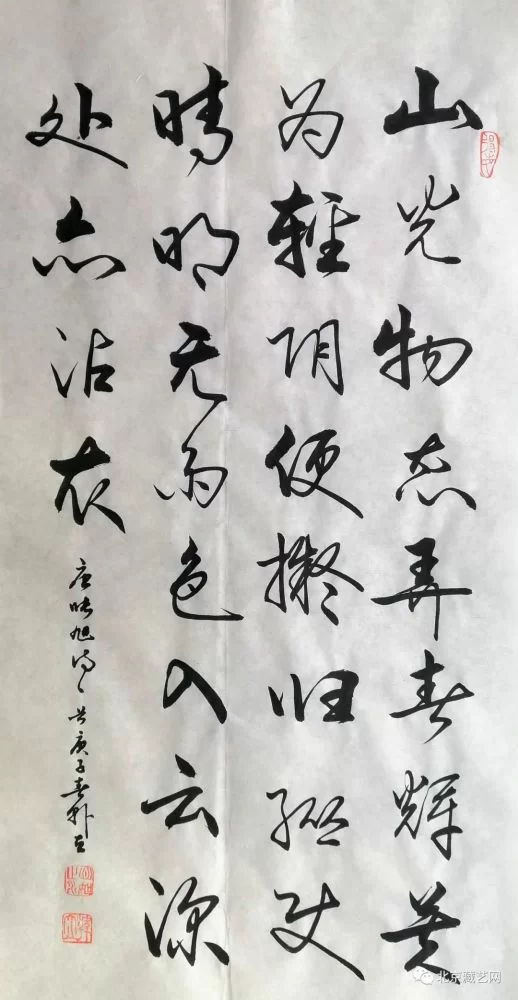 山光物态弄春辉莫
为輕阴便擬归纵使
晴明无雨色入云深
处亦沾衣
唐张旭诗 庚子春
北京藏艺网